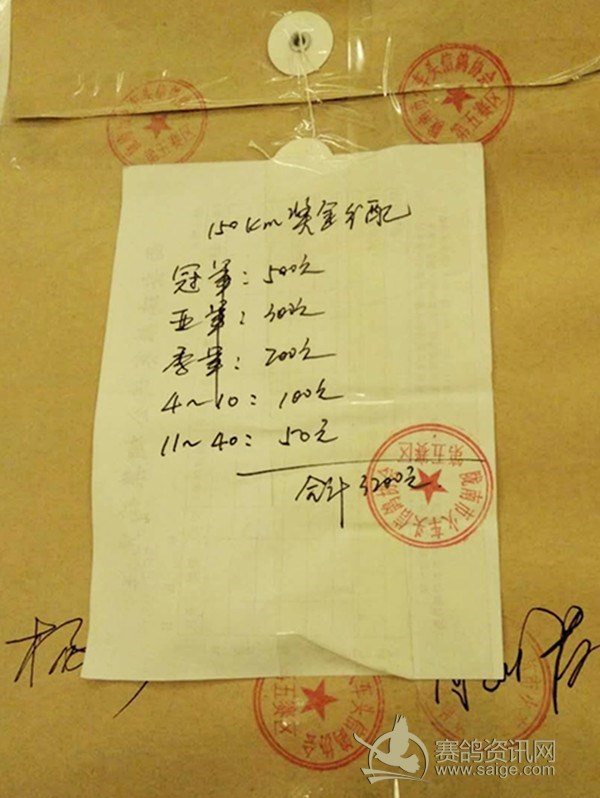 150km奖金分配
冠军：500元
亚军：300元
季军：200元
4~10：100元
11~40：50元
合计3200元.
陇南市火车头信鸽协会
第五赛区
赛鸽资讯网
www.saige.com